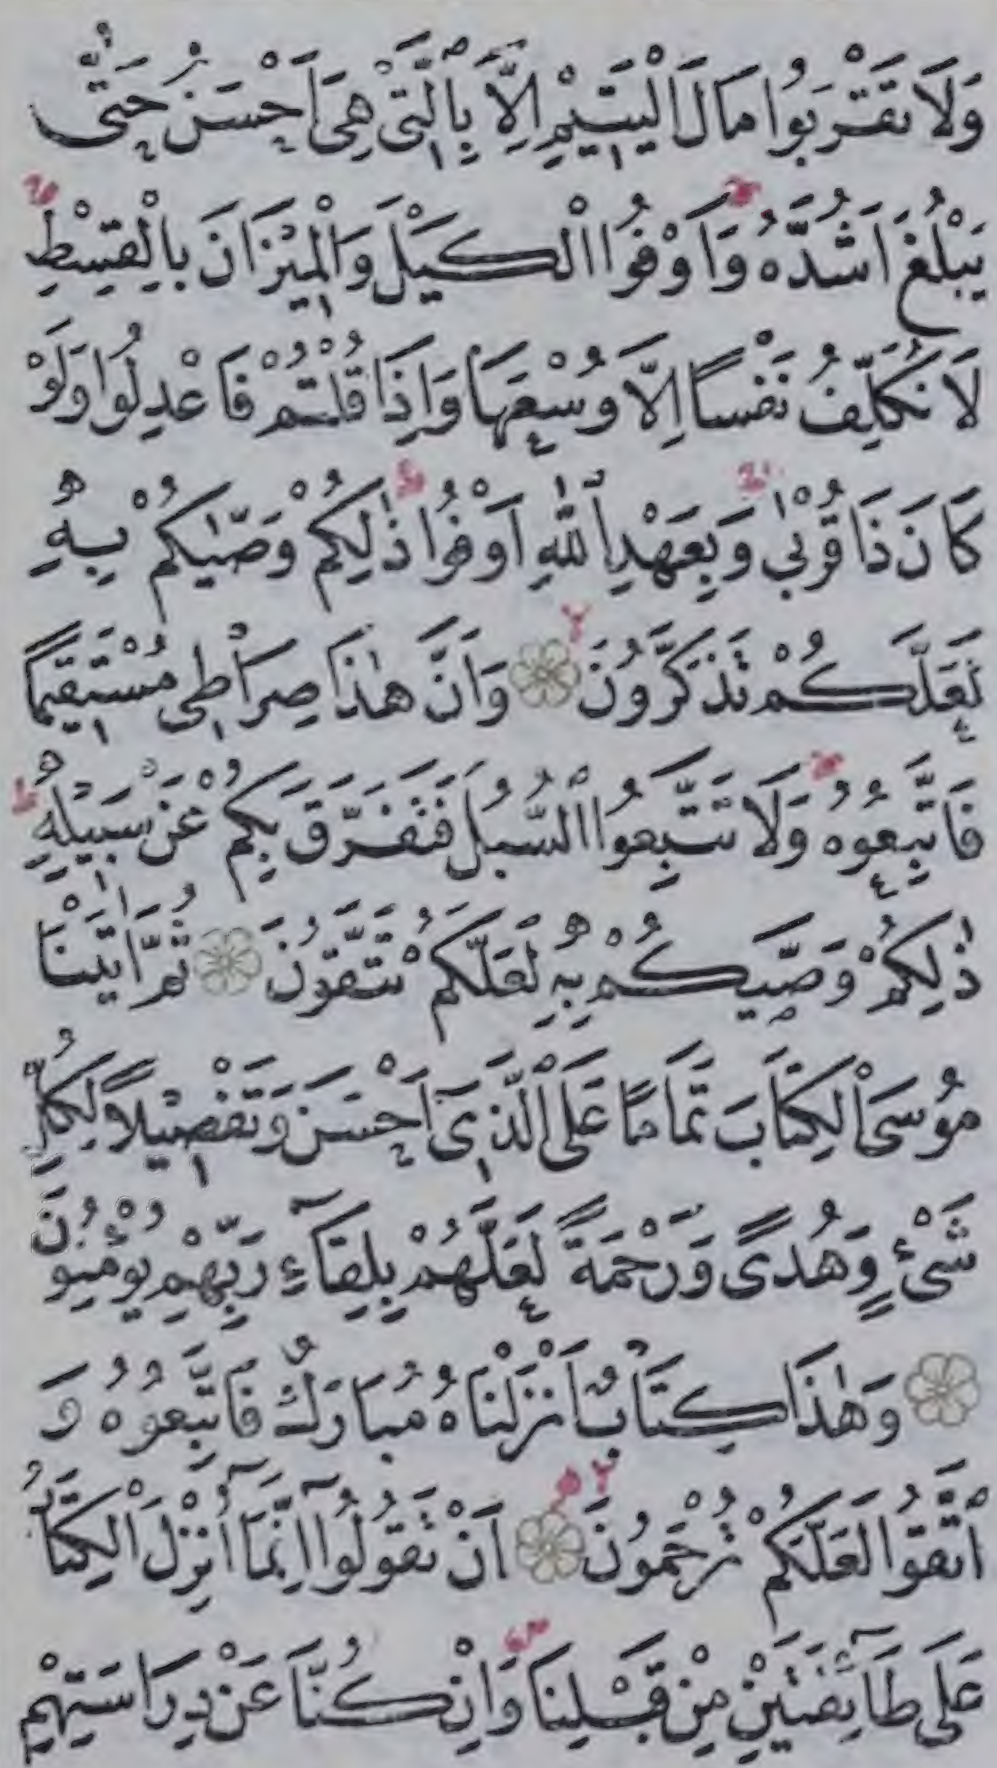 وَلَا تَقْرَبُوا مَالَ الْيَتِيمِ اِلَّا بِالَّتِي هِيَ اَحْسَنُ حَتّٰى
يَبْلُغَ اَشُدَّهُ وَاَوْفُوا الْكَيْلَ وَالْمِيزَانَ بِالْقِسْطِ
لَا نُكَلِّفُ نَفْسًا اِلَّا وُسْعَهَا وَاِذَا قُلْتُمْ فَاعْدِلُوا وَلَوْ
كَانَ ذَا قُرْبٰى وَبِعَهْدِ اللّٰهِ اَوْفُوا ذٰلِكُمْ وَصّٰيكُمْ بِهِ
لَعَلَّكُمْ تَذَكَّرُونَ وَاَنَّ هٰذَا صِرَاطِي مُسْتَقِيمًا
فَاتَّبِعُوهُ وَلَا تَتَّبِعُوا السُّبُلَ فَتَفَرَّقَ بِكُمْ عَنْ سَبِيلِهِ
ذٰلِكُمْ وَصّٰيكُمْ بِهِ لَعَلَّكُمْ تَتَّقُونَ ثُمَّ اٰتَيْنَا
مُوسَى الْكِتَابَ تَمَامًا عَلَى الَّذِٓي اَحْسَنَ وَتَفْصِيلًا لِكُلِّ
شَيْءٍ وَهُدًى وَرَحْمَةً لَعَلَّهُمْ بِلِقَٓاءِ رَبِّهِمْ يُؤْمِنُونَ
وَهٰذَا كِتَابٌ اَنْزَلْنَاهُ مُبَارَكٌ فَاتَّبِعُوهُ وَ
اتَّقُوا لَعَلَّكُمْ تُرْحَمُونَ اَنْ تَقُولُٓوا اِنَّمَٓا اُنْزِلَ الْكِتَابُ
عَلٰى طَٓائِفَتَيْنِ مِنْ قَبْلِنَا وَاِنْ كُنَّا عَنْ دِرَاسَتِهِمْ